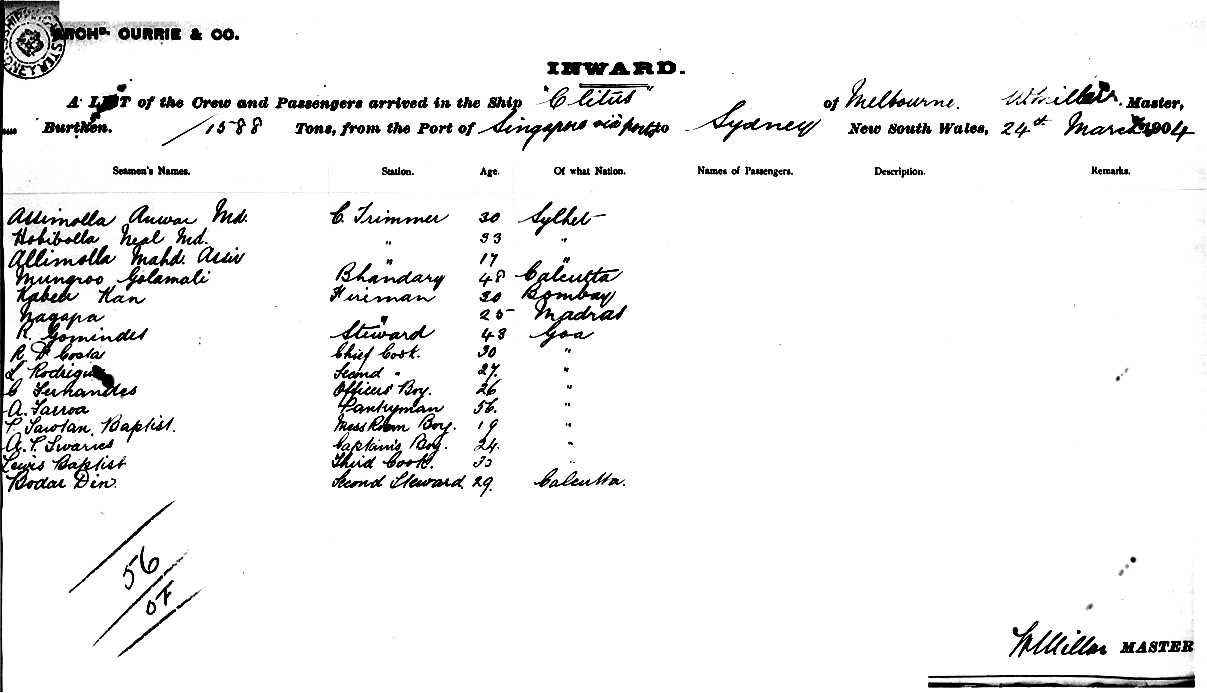 ARCHD. CURRIE & CO.
INWARD.
A LIST of the Crew and Passengers arrived in the Ship "Clitus" of Melbourne. W Millar. Master,
Burthen. 1588 Tons, from the Port of Singapore via ports to Sydney New South Wales, 24th March 1904
Seamen's Names. Station. Age. Of what Nation. Names of Passengers. Description. Remarks.
Assimolla Anwar Md. C. Trimmer 30 Sylhet
Hobibolla Neal Md. " 33 "
Allimolla Mahd. Assir " 17 "
Mungroo Golamali Bhandary 48 Calcutta
Kabeer Kan Fireman 30 Bombay
Nagapa " 25 Madras
R. Gomindes Steward 43 Goa
R D Costa Chief Cook. 30 "
L Rodrigues Second " 27. "
C Fernandes Officers' Boy. 26 "
A. Farroa Pantryman 56. "
P. Sawtan Baptist. Mess Room Boy. 19 "
A. P. Swaries Captain's Boy. 24. "
Lewis Baptist Third Cook. "
Bodar Din. Second Steward 29. Calcutta.
56
OF
W Millar MASTER